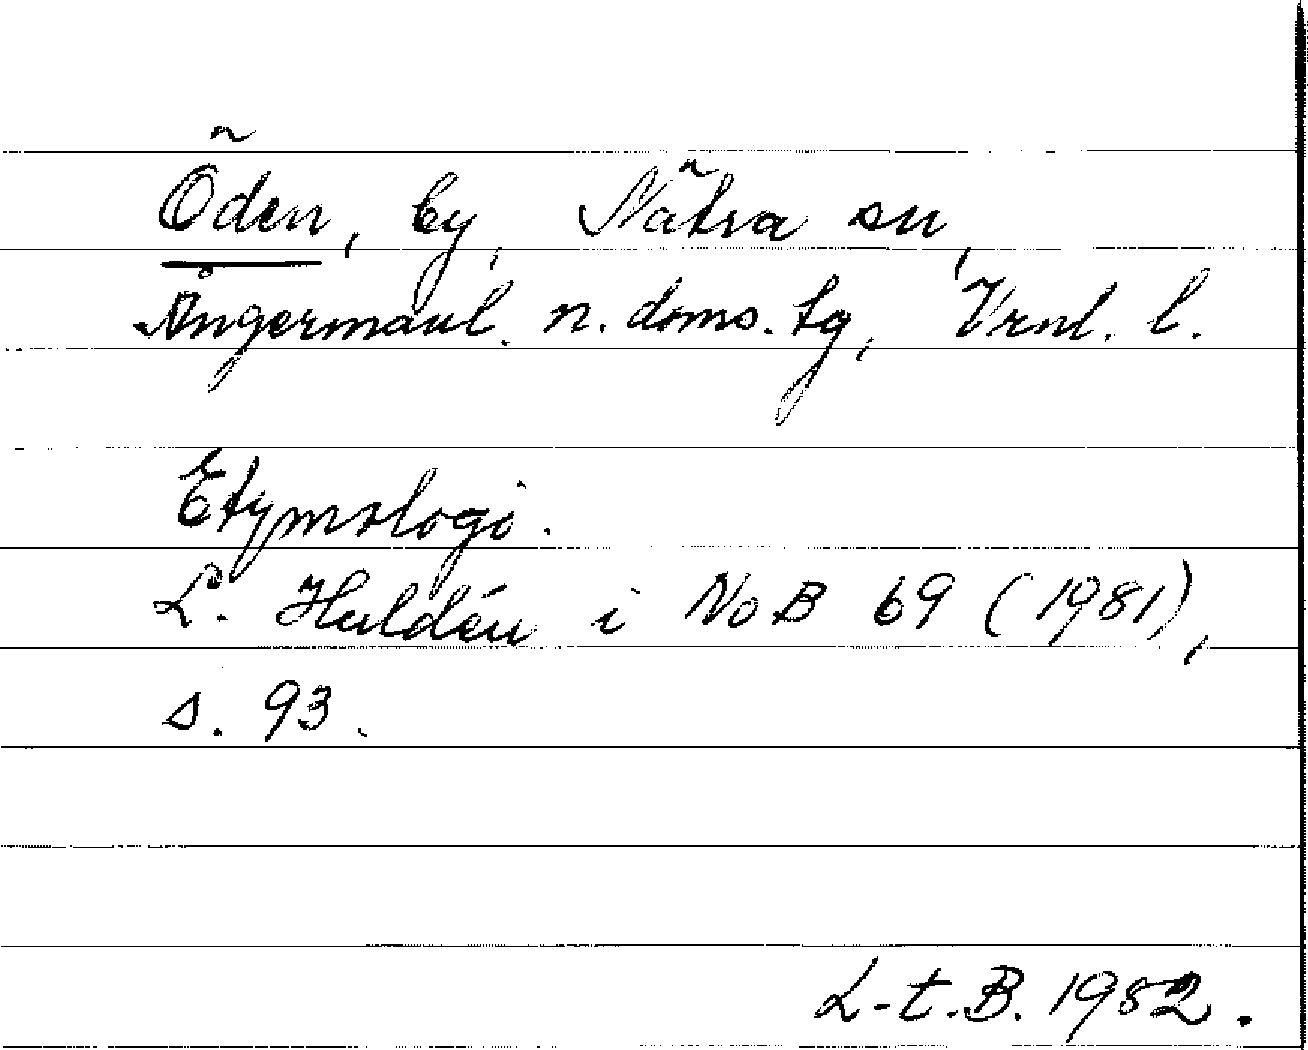 Öden, by, Nätra sn,
Ångermanl. n. doms. tg, Vrnl. l.
Etymologi.
L. Huldén i NoB 69 (1981),
s. 93.
L-t. B. 1982.